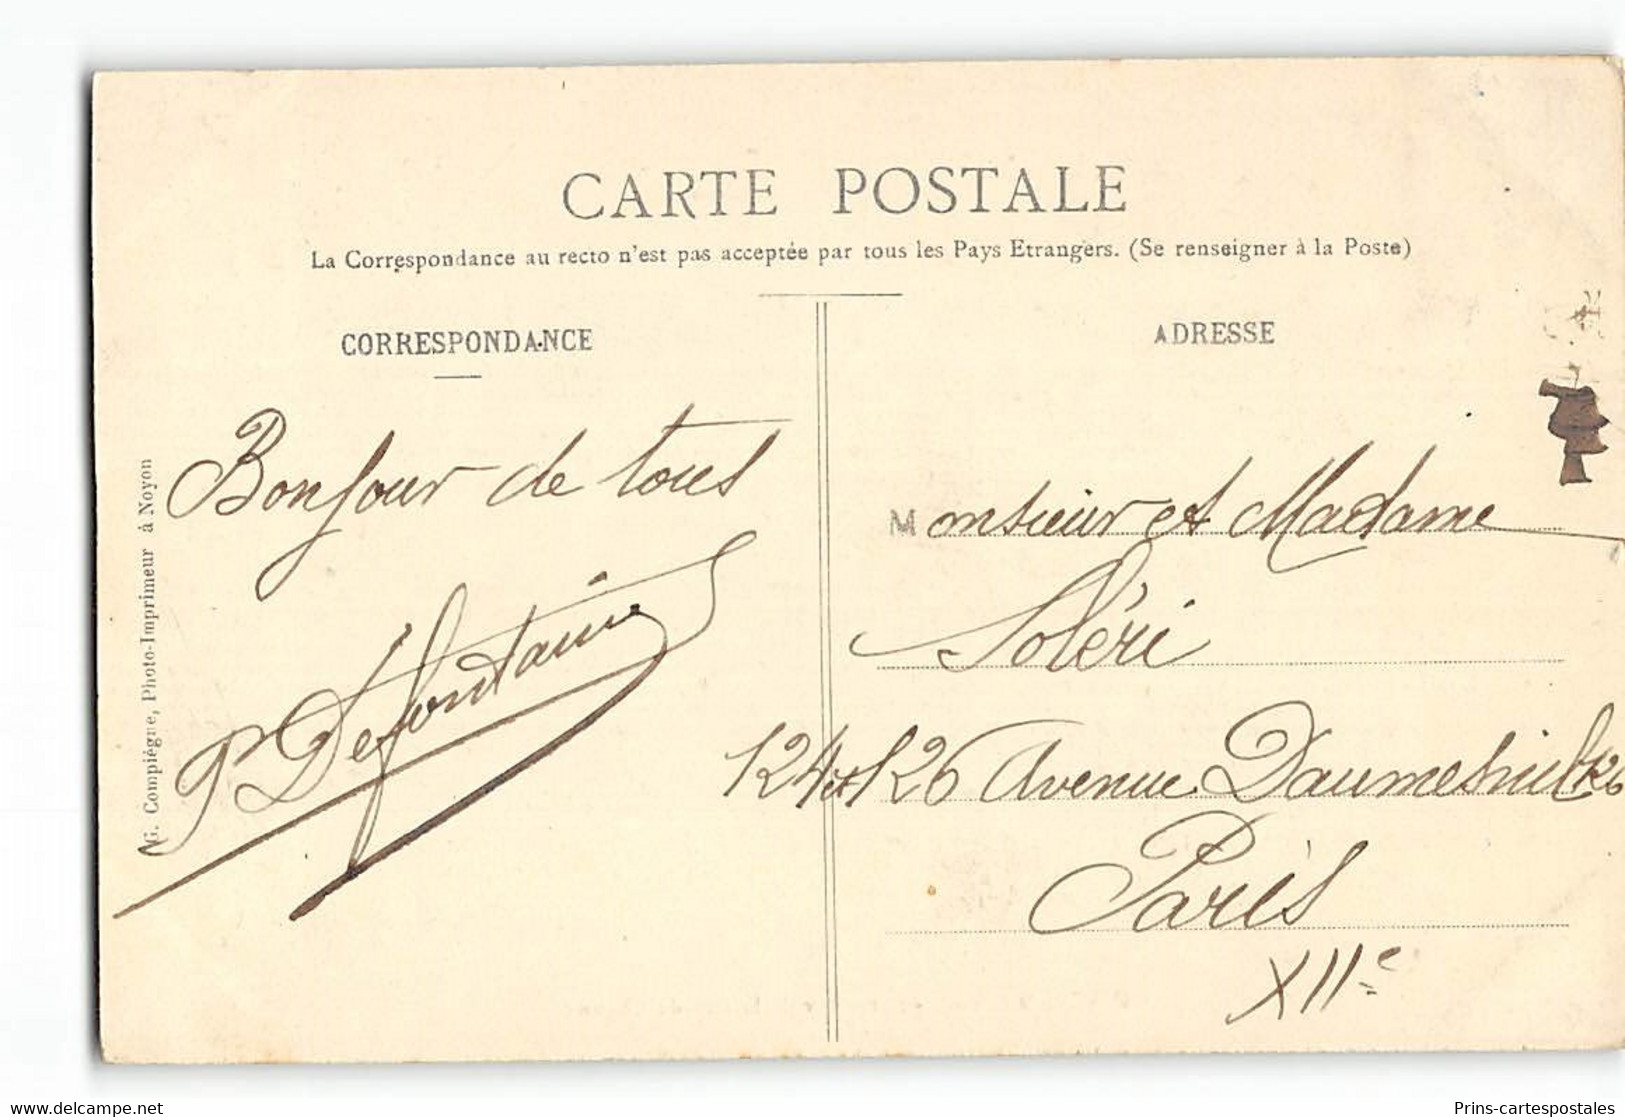 CARTE POSTALE
La Correspondance au recto n'est pas acceptée par tous les Pays Etrangers. (Se renseigner à la Poste)
CORRESPONDANCE
ADRESSE
Bonjour de tous
Defontaine
G. Compiégne, Photo-Imprimeur à Noyon
Monsieur et Madame
Soléri
124 et 126 Avenue Daumesnil
Paris
XIIe
www.delcampe.net
Prins-cartespostales